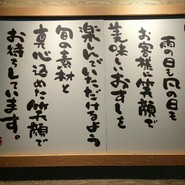 雨の日も風の日も
お客様に笑顔で
美味しいおすしを
楽しんでいただけるよう
旬の素材と
真心込めた笑顔で
お待ちしています。